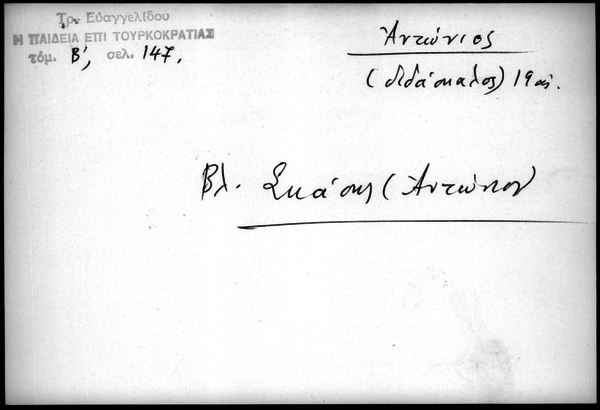 Τρ. Εὐαγγελίδου
Η ΠΑΙΔΕΙΑ ΕΠΙ ΤΟΥΡΚΟΚΡΑΤΙΑΣ
τόμ. Β', σελ. 147.
Ἀντώνιος
(διδάσκαλος) 19 αἰ.
Βλ. Σκάσης (Ἀντώνιος)